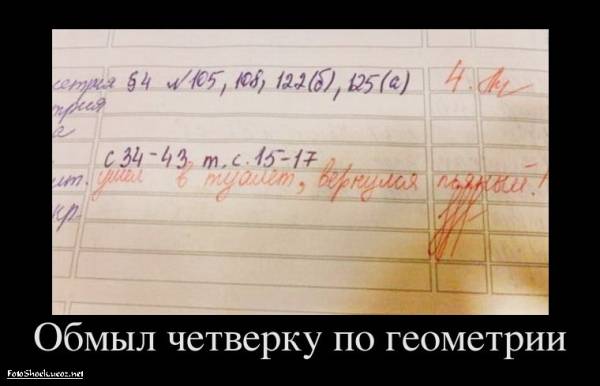 §4 №105, 108, 122(б), 125(а) 4.
с 34-43 т.с.15-17
ушел в туалет, вернулся пьяный!
Обмыл четверку по геометрии
FotoShock.ucoz.net